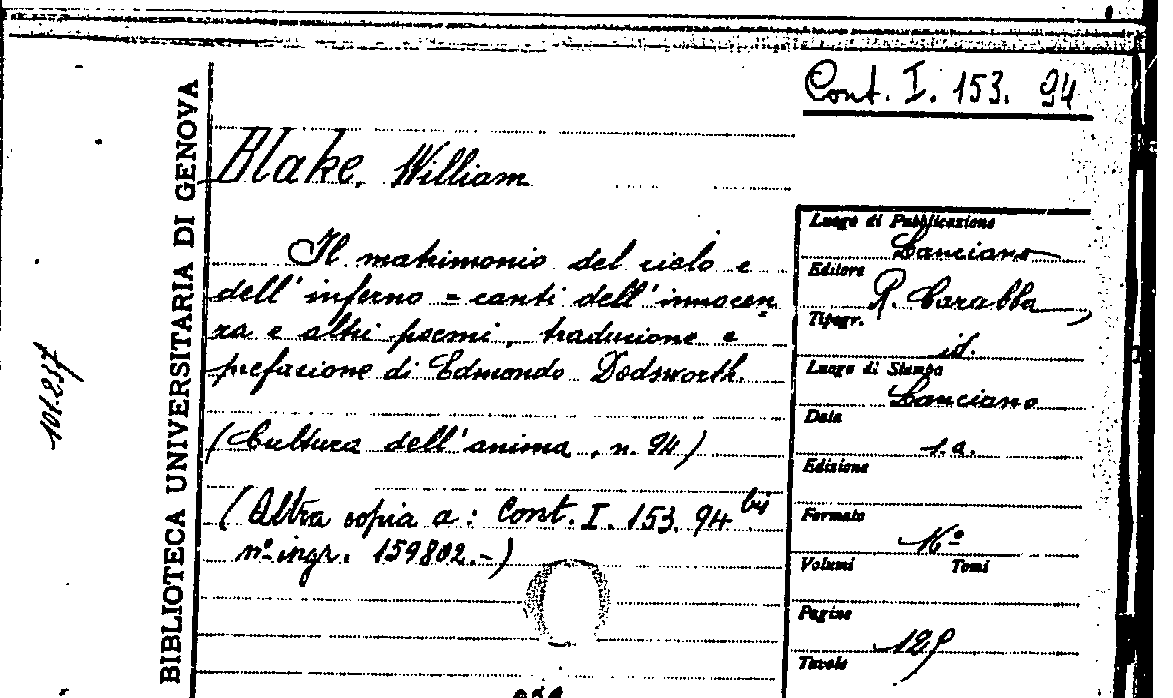 Cont. I. 153. 94
BIBLIOTECA UNIVERSITARIA DI GENOVA
Blake, William
Il matrimonio del cielo e
dell'inferno = canti dell'innocen=
za e altri poemi, traduzione e
prefazione di Edmondo Dodsworth.
(Cultura dell'anima, n. 94)
(Altra copia a: Cont. I. 153. 94 bis
nº ingr. 159802.-)
Luogo di Pubblicazione
Lanciano
Editore
R. Carabba,
Tipogr.
id.
Luogo di Stampa
Lanciano
Data
s.a.
Edizione
Formato
16º
Volumi Tomi
Pagine
Tavole